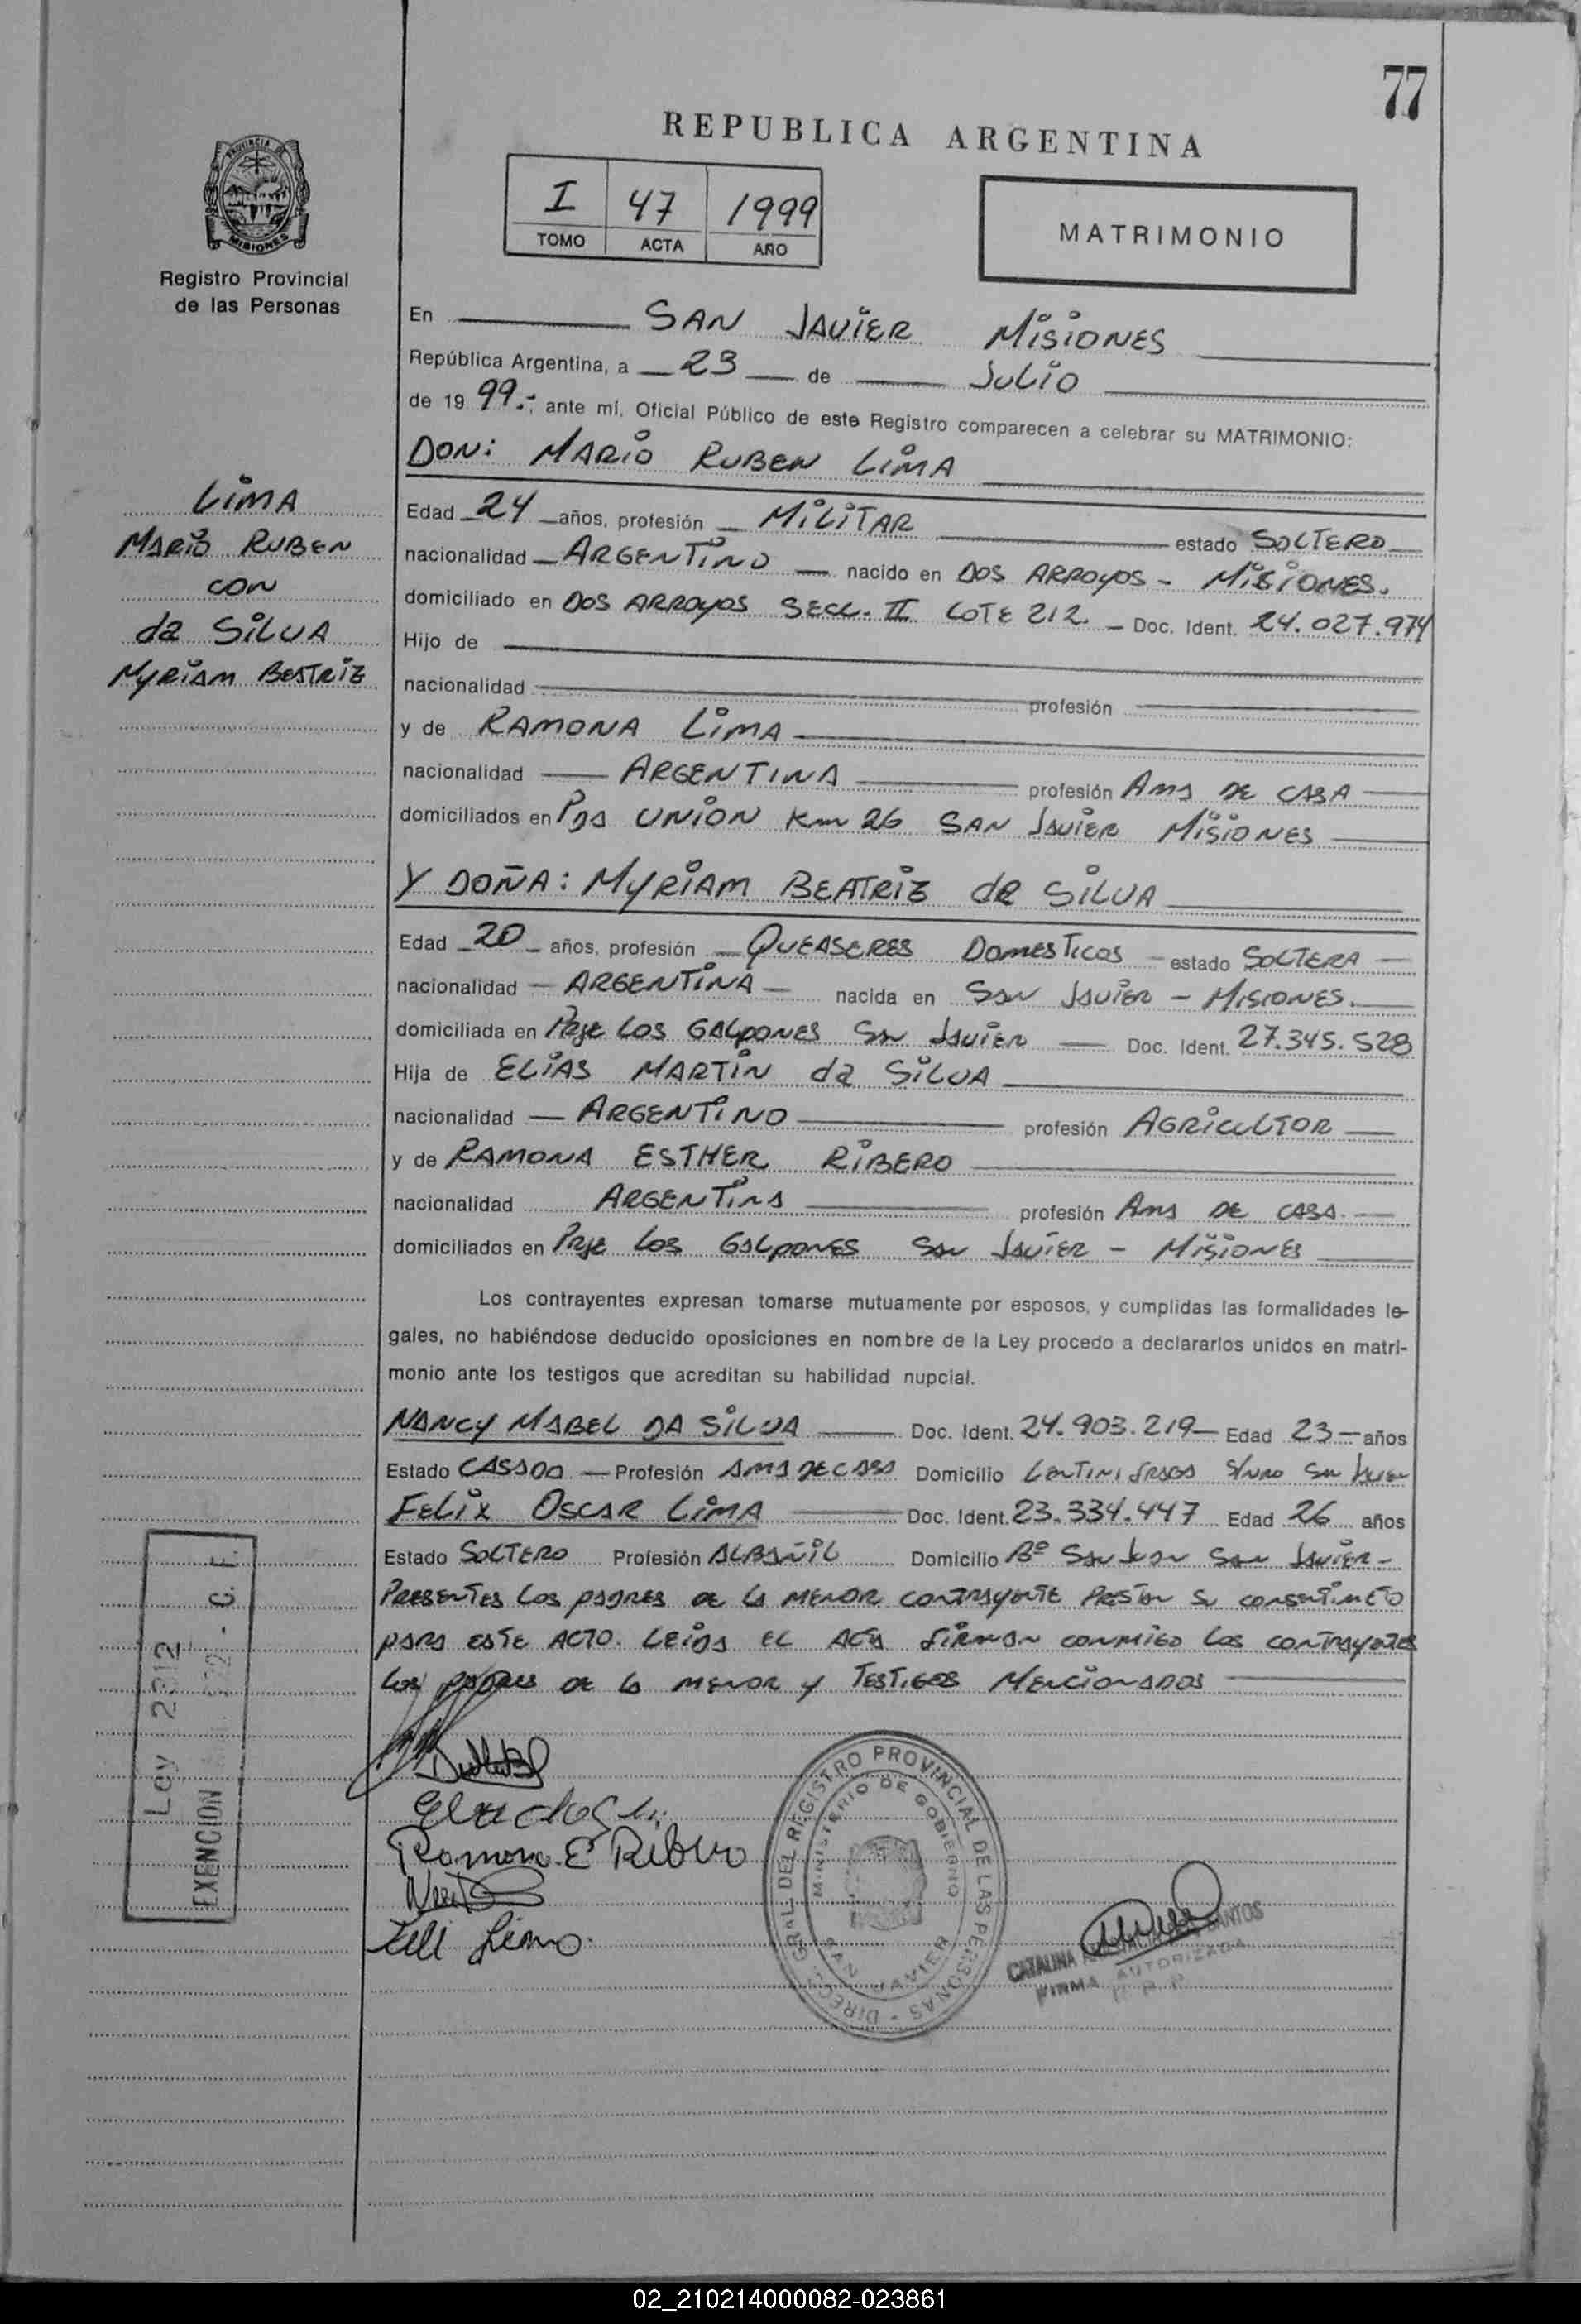 77
REPUBLICA ARGENTINA
I 47 1999
TOMO ACTA AÑO
MATRIMONIO
PROVINCIA DE
MISIONES
Registro Provincial
de las Personas
En SAN JAVIER MISIONES
República Argentina, a 23 de JULIO
de 19 99.-; ante mí, Oficial Público de este Registro comparecen a celebrar su MATRIMONIO:
DON: MARIO RUBEN LIMA
LIMA
MARIO RUBEN
CON
da SILVA
MYRIAM BEATRIZ
Edad 24 años, profesión MILITAR estado SOLTERO
nacionalidad ARGENTINO nacido en DOS ARROYOS - MISIONES.
domiciliado en DOS ARROYOS SECC. II LOTE 212. Doc. Ident. 24.027.974
Hijo de
nacionalidad profesión
y de RAMONA LIMA
nacionalidad ARGENTINA profesión AMA DE CASA
domiciliados en PDA UNION Km 26 SAN JAVIER MISIONES
Y DOÑA: MYRIAM BEATRIZ da SILVA
Edad 20 años, profesión QUEASERES DOMESTICOS estado SOLTERA
nacionalidad ARGENTINA nacida en SAN JAVIER - MISIONES.
domiciliada en PRJE LOS GALPONES SAN JAVIER Doc. Ident. 27.345.528
Hija de ELIAS MARTIN da SILVA
nacionalidad ARGENTINO profesión AGRICULTOR
y de RAMONA ESTHER RIBERO
nacionalidad ARGENTINA profesión AMA DE CASA.
domiciliados en PRJE LOS GALPONES SAN JAVIER - MISIONES
Los contrayentes expresan tomarse mutuamente por esposos, y cumplidas las formalidades le-
gales, no habiéndose deducido oposiciones en nombre de la Ley procedo a declararlos unidos en matri-
monio ante los testigos que acreditan su habilidad nupcial.
NANCY MABEL DA SILVA Doc. Ident. 24.903.219 Edad 23 años
Estado CASADO Profesión AMA DE CASA Domicilio S/NRO SAN JAVIER
FELIX OSCAR LIMA Doc. Ident. 23.334.447 Edad 26 años
Estado SOLTERO Profesión ALBAÑIL Domicilio Bº SAN JUAN SAN JAVIER -
PRESENTES LOS PADRES DE LA MENOR CONTRAYENTE PRESTAN SU
PARA ESTE ACTO. LEIDA EL ACTA FIRMAN CONMIGO LOS CONTRAYENTES
LOS PADRES DE LA MENOR Y TESTIGOS MENCIONADOS
Ley 2312
EXENCION
Ramona E Ribero
DIRECC. GRAL. DEL REGISTRO PROVINCIAL DE LAS PERSONAS -
MINISTERIO DE GOBIERNO
SAN JAVIER
CATALINA SANTOS
FIRMA AUTORIZADA
02_210214000082-023861